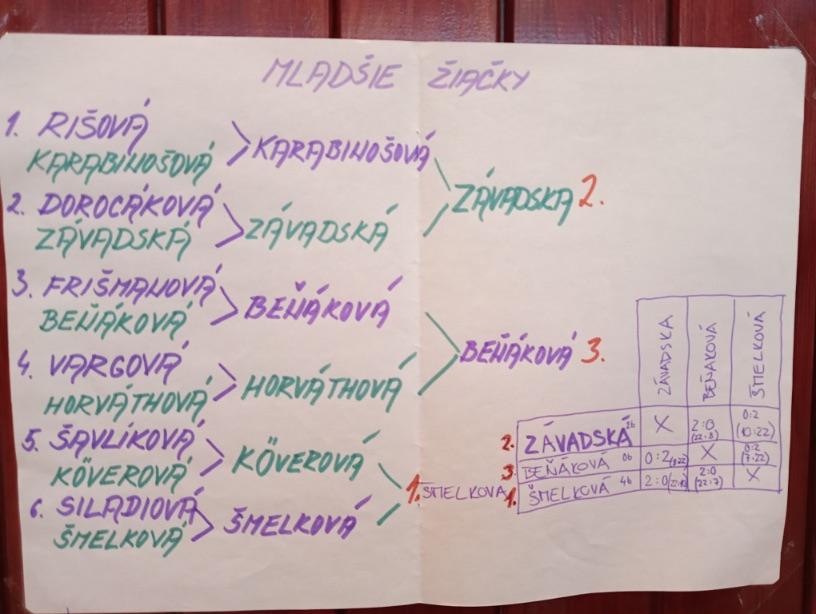 MLADŠIE ŽIAČKY
1. RIŠOVÁ
KARABINOŠOVÁ
KARABINOŠOVÁ
2. DOROCÁKOVÁ
ZÁVADSKÁ
ZÁVADSKÁ
ZÁVADSKA 2.
3. FRIŠMANOVÁ
BEŇÁKOVÁ
BEŇÁKOVÁ
4. VARGOVÁ
HORVÁTHOVÁ
HORVÁTHOVÁ
BEŇÁKOVÁ 3.
5. ŠAVLÍKOVÁ
KÖVEROVÁ
KÖVEROVÁ
6. SILADIOVÁ
ŠMELKOVÁ
ŠMELKOVÁ
1. ŠMELKOVA
ZÁVADSKA BEŇAKOVÁ ŠMELKOVÁ
2. ZÁVADSKÁ 2b X 2:0 (22:8) 0:2 (10:22)
3. BEŇÁKOVÁ 0b 0:2 (8:22) X 0:2 (7:22)
1. ŠMELKOVÁ 4b 2:0 2:0 (22:7) X